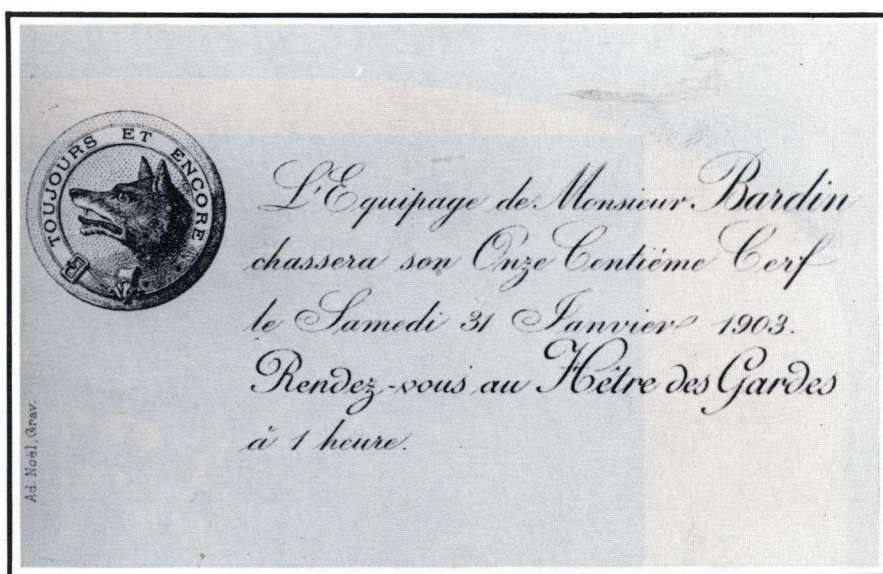 TOUJOURS ET ENCORE
B
L'Equipage de Monsieur Bardin
chassera son Onze Centième Cerf
le Samedi 31 Janvier 1903.
Rendez-vous au Hêtre des Gardes
à 1 heure.
Ad. Noël, Grav.